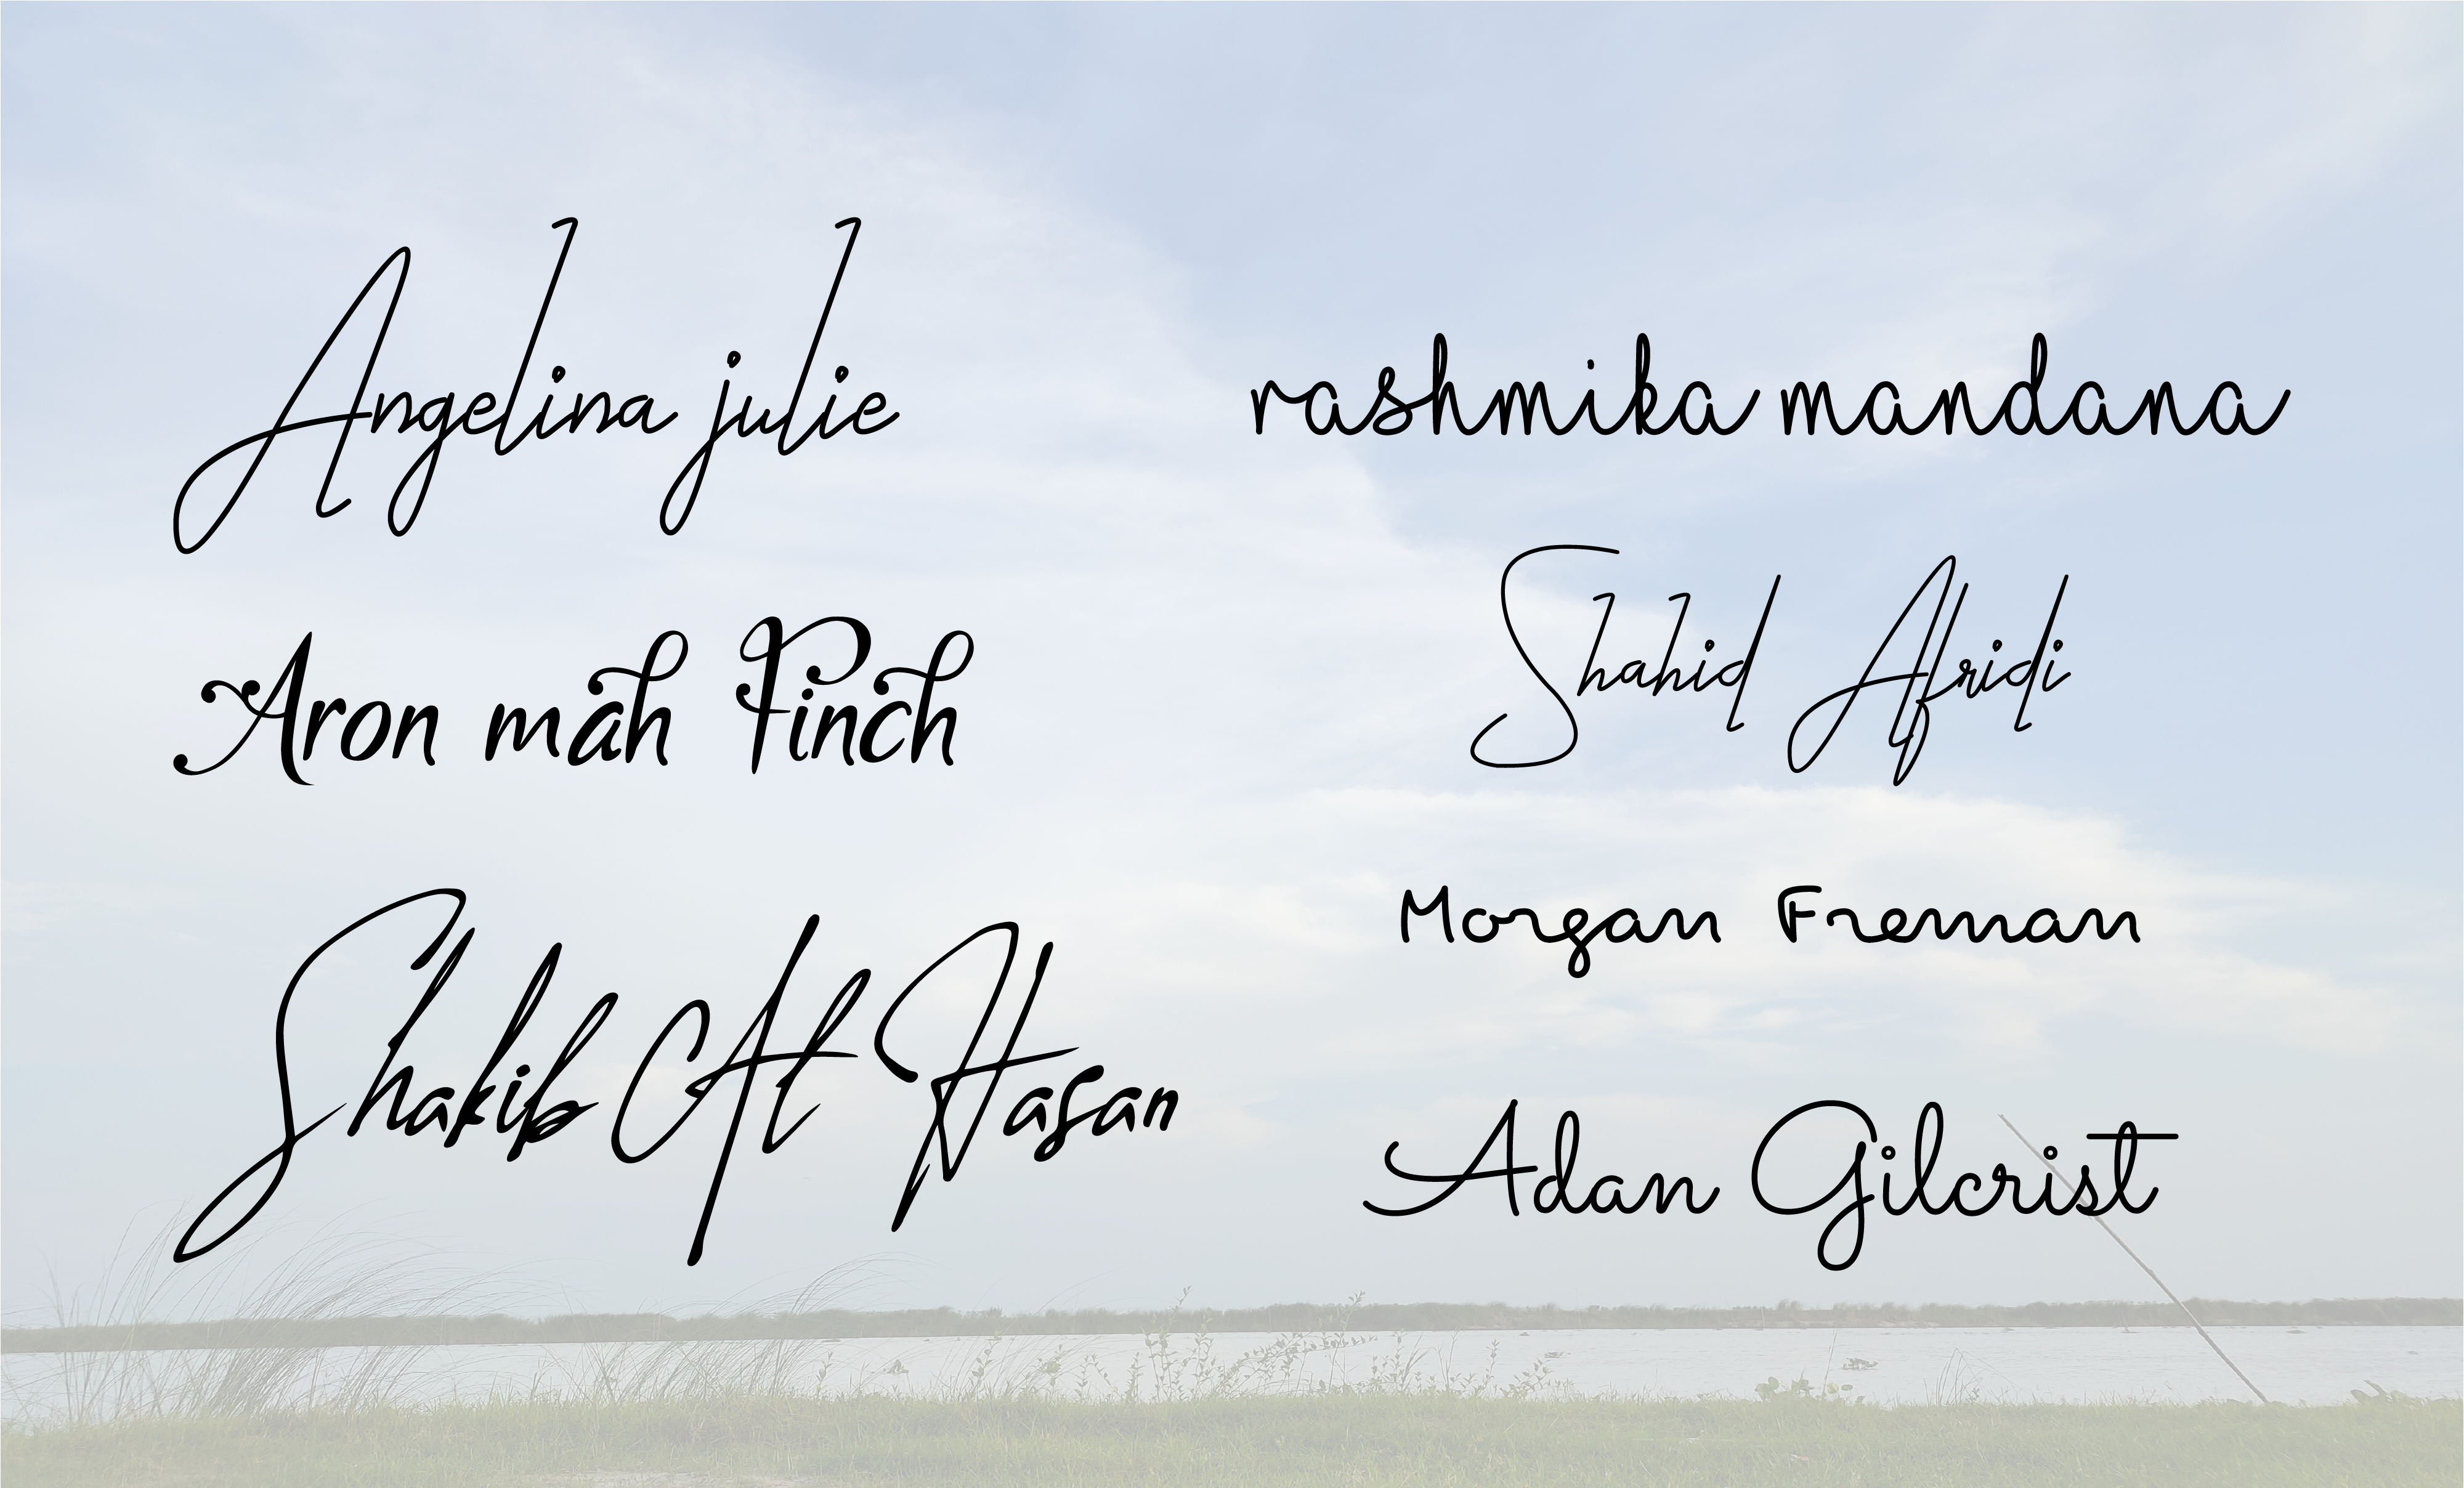 Angelina julie
Aron mah Pinch
Shakib Al Hasan
rashmika mandana
Shahid Afridi
Morgan Freman
Adan Gilcrist